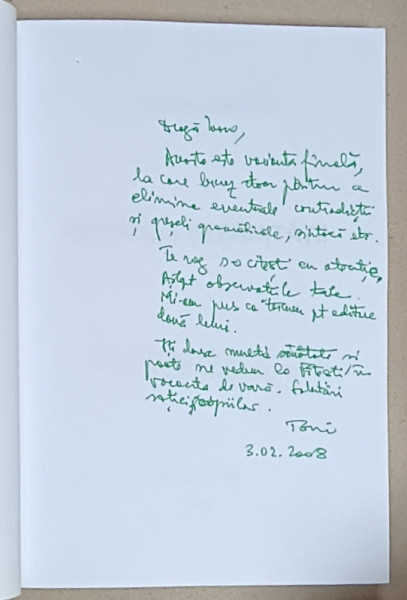 Dragă
Aceasta este varianta finală,
la care lucrez doar pentru a
elimina eventuale contradicții
și greșeli gramaticale, sintaxă etc.
Te rog s-o citești cu atenție,
Aștept observațiile tale.
Mi-am pus ca termen pt editare
două luni.
Îți doresc multă sănătate și
poate ne vedem la Pitești/în
vacanța de vară. Salutări
soției,
Toni
3.02.2008